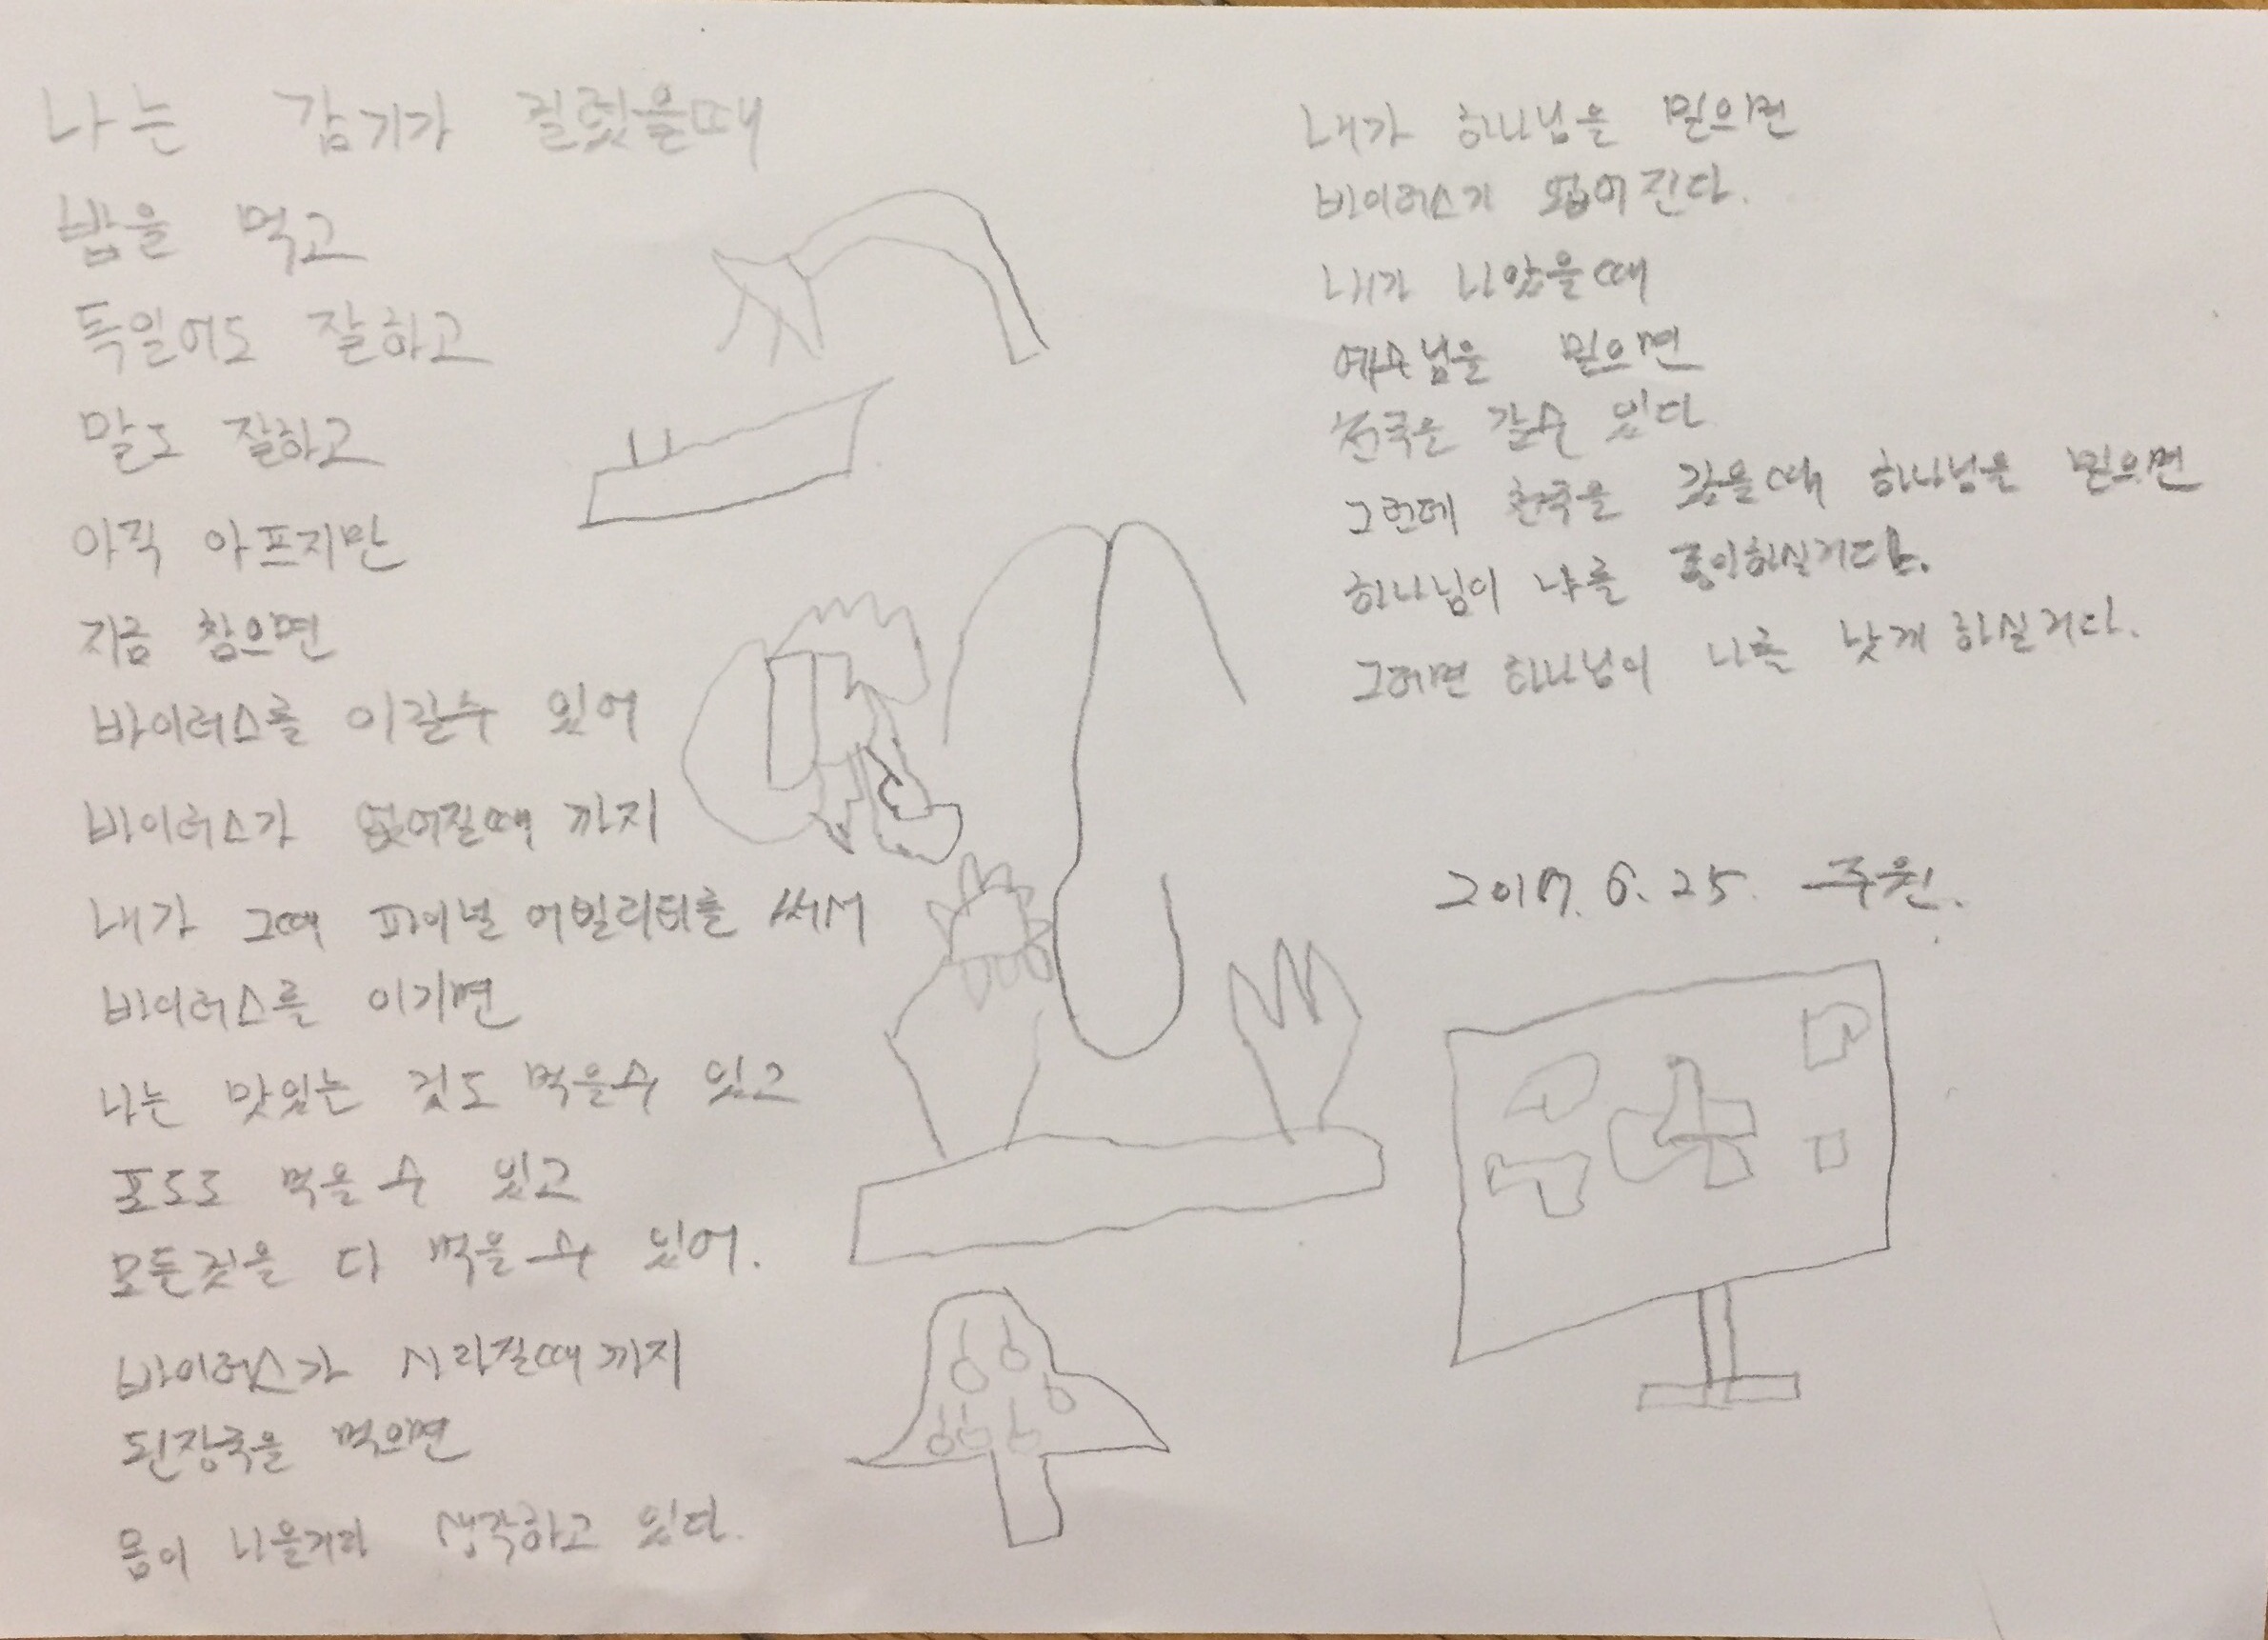 나는 감기가 걸렸을때
밥을 먹고
독일어도 잘하고
말도 잘하고
아직 아프지만
지금 참으면
바이러스를 이길수 있어
바이러스가 없어질때 까지
내가 그때 파이널 어빌리티를 써서
바이러스를 이기면
나는 맛있는 것도 먹을수 있고
포도도 먹을 수 있고
모든것을 다 먹을 수 있어.
바이러스가 사라질때 까지
된장국을 먹으면
몸이 나을거라 생각하고 있다.
내가 하나님을 믿으면
바이러스가 없어진다.
내가 나았을때
예수님을 믿으면
천국은 갈수 있다
그런데 천국을 갔을때 하나님을 믿으면
하나님이 나를 하실거다.
그러면 하나님이 나를 낫게 하실거다.
2017. 6. 25. 주원.